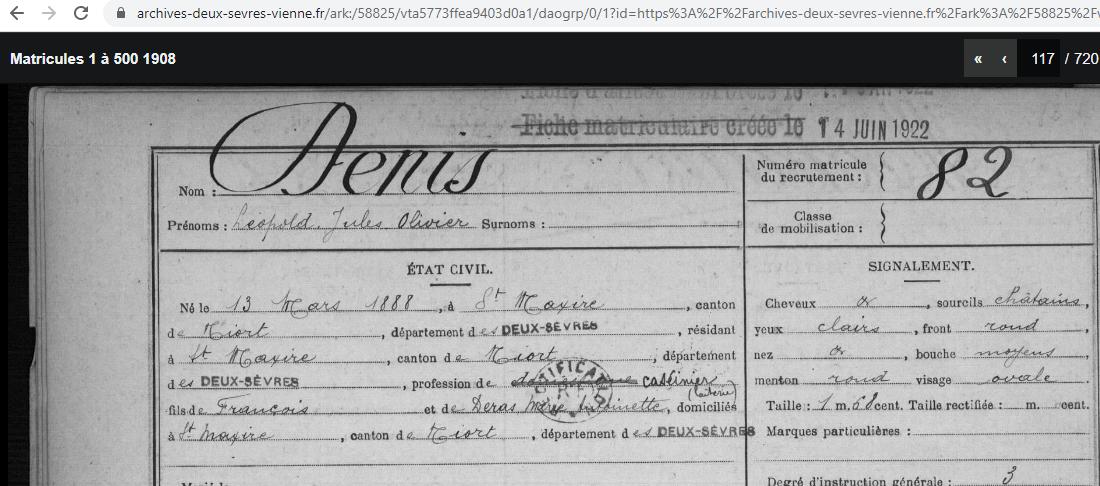 archives-deux-sevres-vienne.fr/ark:/58825/vta5773ffea9403d0a1/daogrp/0/1?id=https%3A%2F%2Farchives-deux-sevres-vienne.fr%2Fark%3A%2F58825%2F
Matricules 1 à 500 1908
« ‹ 117 / 720
Fiche matriculaire créée le 14 JUIN 1922
Nom : Denis
Numéro matricule du recrutement : 82
Prénoms : Léopold Jules Olivier Surnoms :
Classe de mobilisation :
ÉTAT CIVIL.
SIGNALEMENT.
Né le 13 Mars 1888, à St Maxire, canton
Cheveux et, sourcils châtains,
de Niort, département des DEUX-SÈVRES, résidant
yeux clairs, front rond,
à St Maxire, canton de Niort, département
nez, bouche moyens
des DEUX-SÈVRES, profession de domestique caséinier
(laiterie)
menton rond visage ovale
fils de François et de Deras Marie Antoinette, domiciliés
Taille : 1 m. 61 cent. Taille rectifiée : m. cent.
à St Maxire, canton de Niort, département des DEUX-SÈVRES
Marques particulières :
Degré d'instruction générale : 3